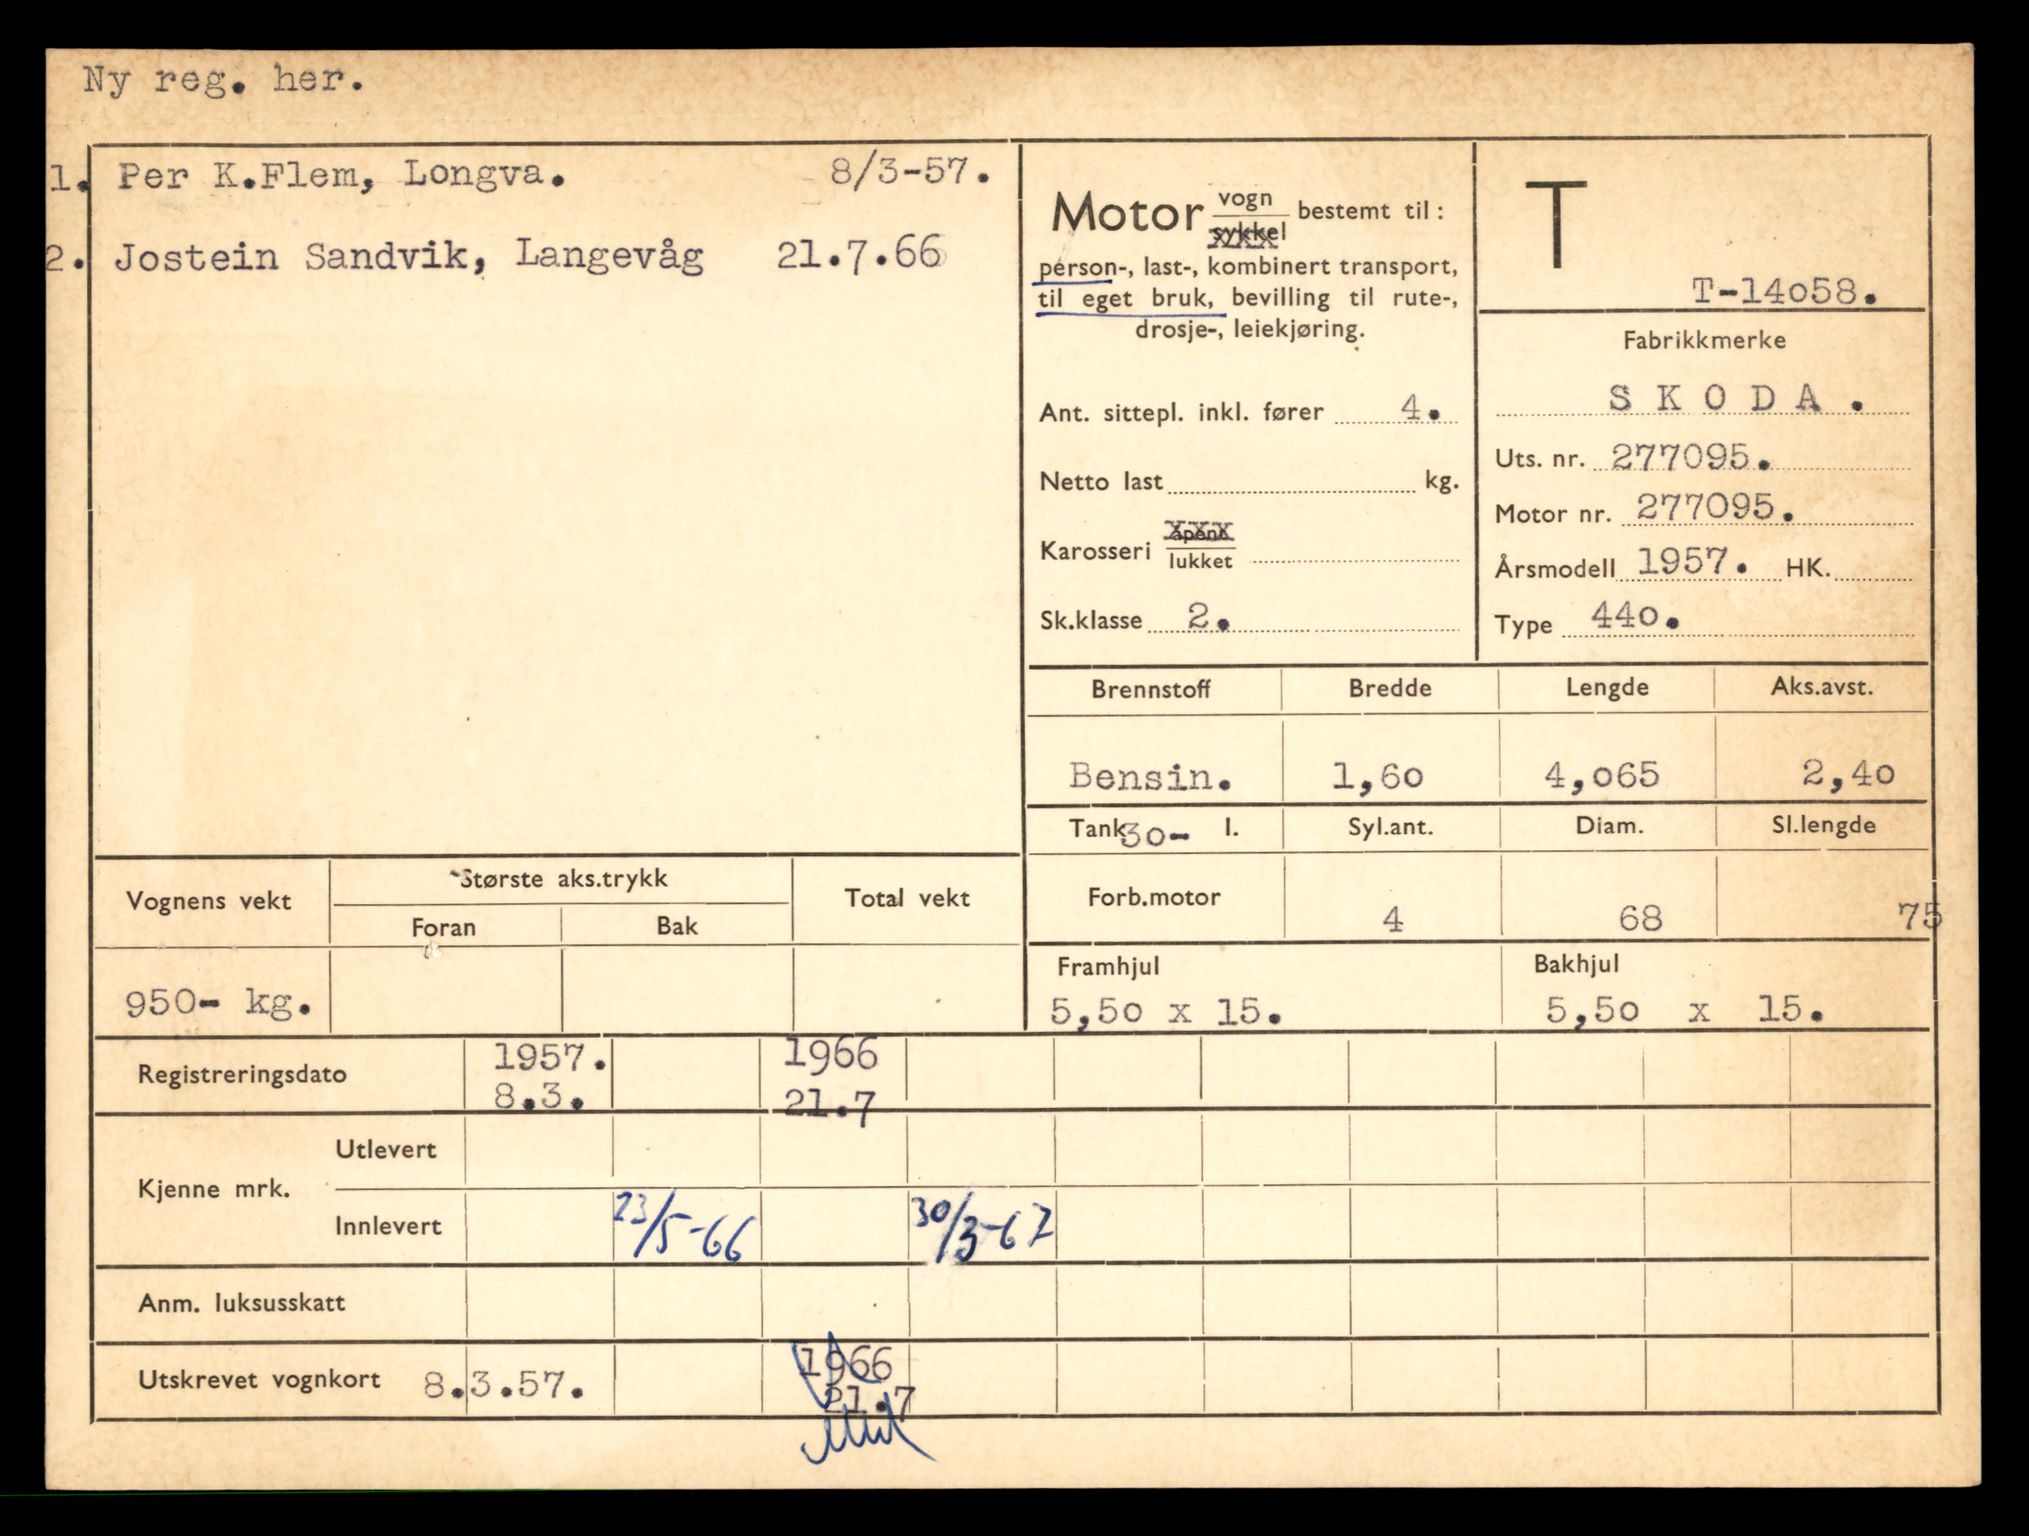 Ny reg. her.
1. Per K.Flem, Longva. 8/3-57.
2. Jostein Sandvik, Langevåg 21.7.66
Motor vogn sykkel bestemt til:
person-, last-, kombinert transport,
til eget bruk, bevilling til rute-,
drosje-, leiekjøring.
Ant. sittepl. inkl. fører 4.
Netto last kg.
Karosseri åpent lukket
Sk.klasse 2.
T
T-14058.
Fabrikkmerke
SKODA.
Uts. nr. 277095.
Motor nr. 277095.
Årsmodell 1957. HK.
Type 440.
Brennstoff Bredde Lengde Aks.avst.
Bensin. 1,60 4,065 2,40
Tank 30- l. Syl.ant. Diam. Sl.lengde
Forb.motor 4 68 75
Framhjul Bakhjul
5,50 x 15. 5,50 x 15.
Vognens vekt Største aks.trykk Total vekt
Foran Bak
950- kg.
Registreringsdato 1957. 1966
8.3. 21.7
Kjenne mrk. Utlevert
Innlevert 23/5-66 30/3-67
Anm. luksusskatt
Utskrevet vognkort 8.3.57. 1966
21.7